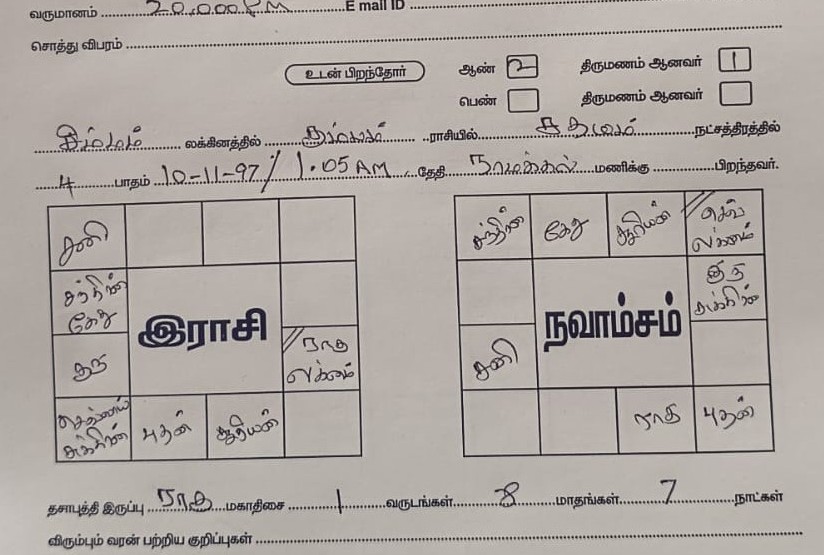 வருமானம் 20,000 PM E mail ID
சொத்து விபரம்
உடன் பிறந்தோர் ஆண் 2 திருமணம் ஆனவர் 1
பெண் திருமணம் ஆனவர்
சிம்மம் லக்கினத்தில் கும்பம் ராசியில் சதயம் நட்சத்திரத்தில்
4 பாதம் 10-11-97 / 1.05 AM தேதி நாமக்கல் மணிக்கு பிறந்தவர்.
சனி
சந்திரன் கேது
குரு
செவ்வாய் சுக்கிரன்
புதன்
சூரியன்
ராகு லக்னம்
இராசி
சந்திரன்
கேது
சூரியன்
செவ் லக்னம்
குரு சுக்கிரன்
சனி
நவாம்சம்
ராகு
புதன்
தசாபுத்தி இருப்பு ராகு மகாதிசை 1 வருடங்கள் 8 மாதங்கள் 7 நாட்கள்
விரும்பும் வரன் பற்றிய குறிப்புகள்